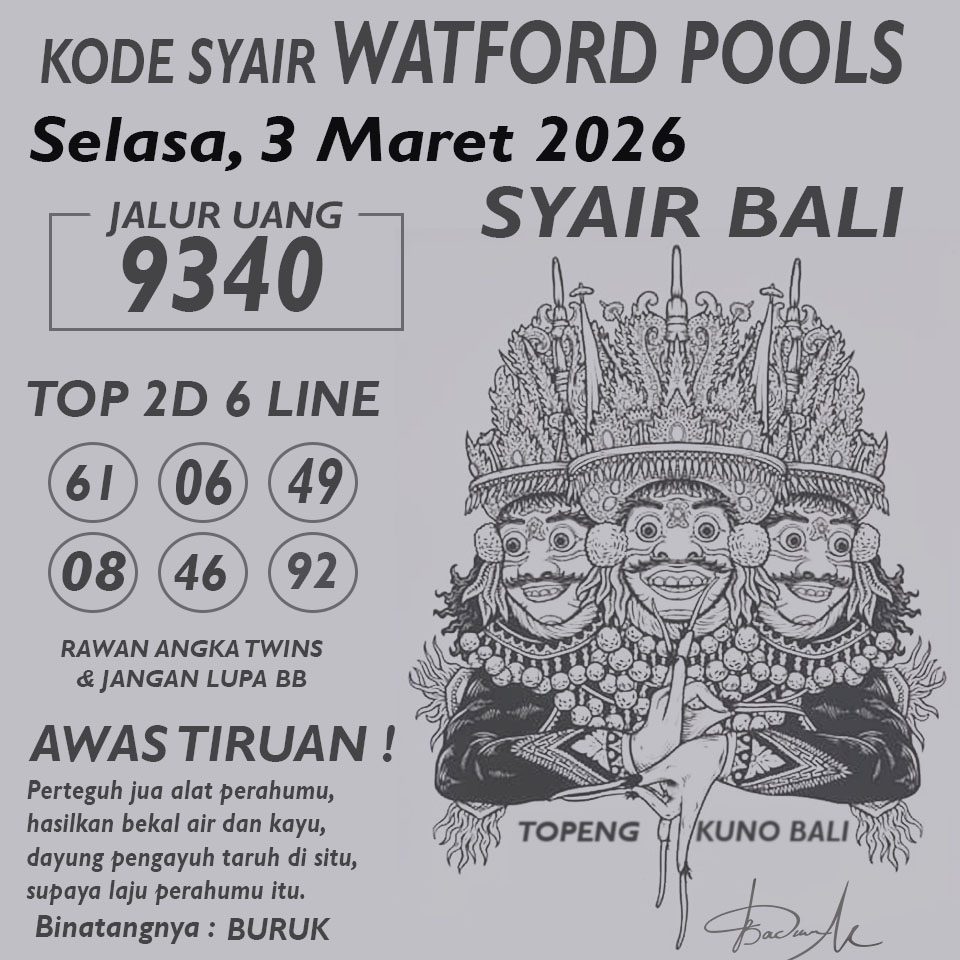 KODE SYAIR WATFORD POOLS
Selasa, 3 Maret 2026
SYAIR BALI
JALUR UANG
9340
TOP 2D 6 LINE
61 06 49
08 46 92
RAWAN ANGKA TWINS
& JANGAN LUPA BB
AWAS TIRUAN !
Perteguh jua alat perahumu,
hasilkan bekal air dan kayu,
dayung pengayuh taruh di situ,
supaya laju perahumu itu.
Binatangnya : BURUK
TOPENG KUNO BALI